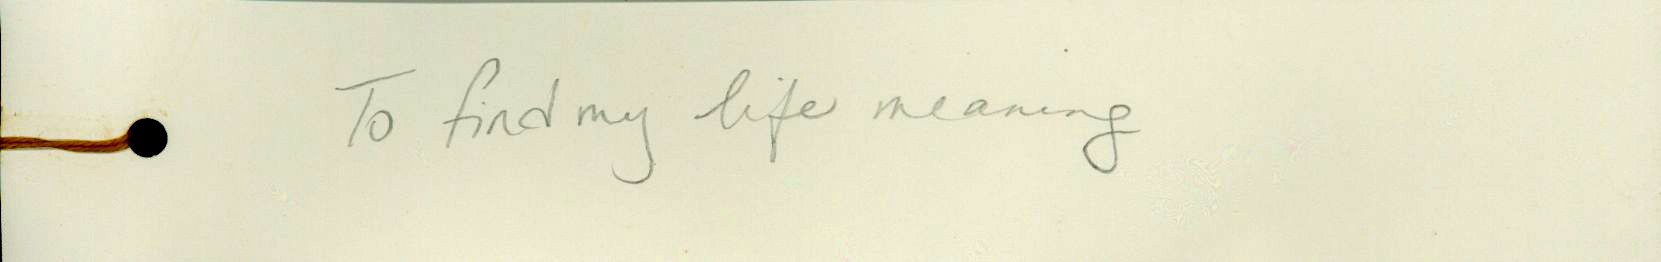 To find my life meaning